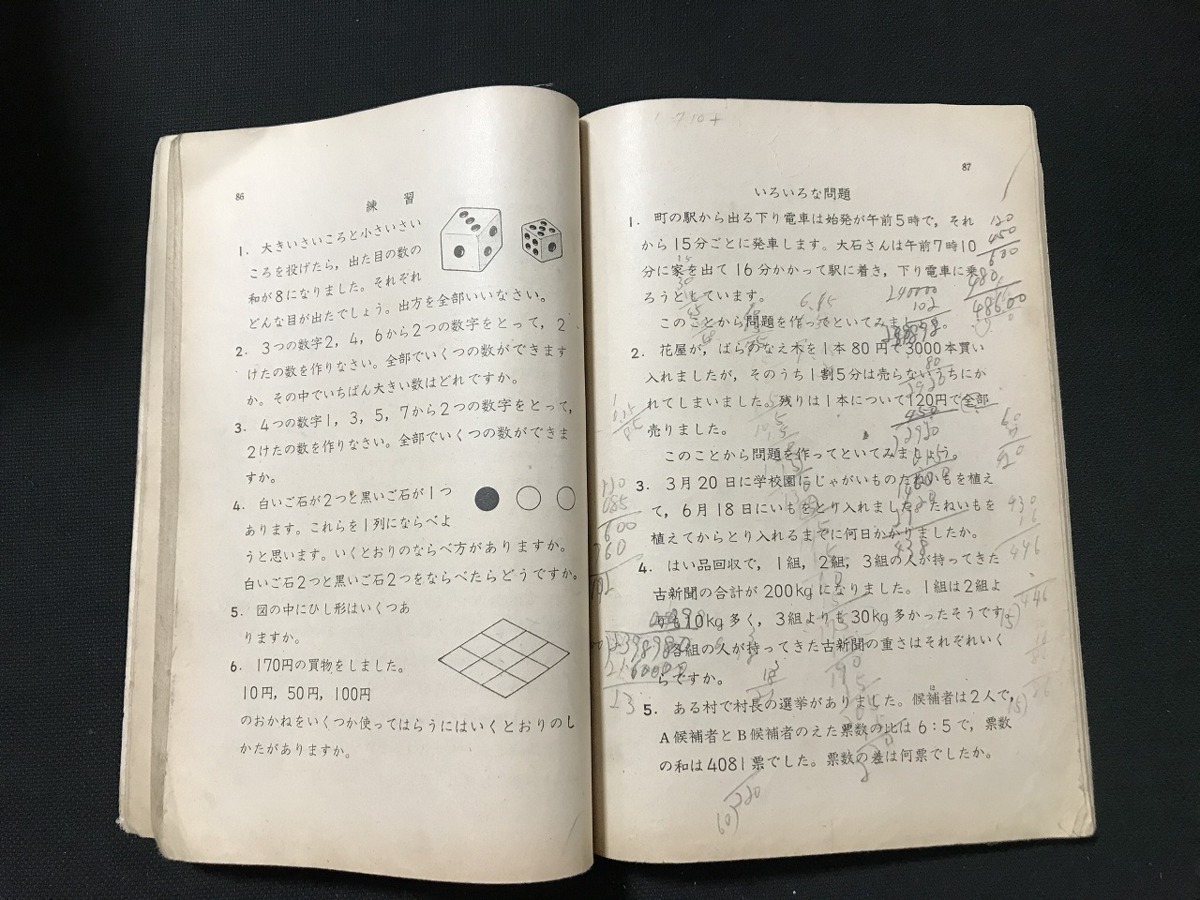 86
練 習
1. 大きいさいころと小さいさい
ころを投げたら，出た目の数の
和が8になりました。それぞれ
どんな目が出たでしょう。出方を全部いいなさい。
2. 3つの数字2，4，6から2つの数字をとって，2
けたの数を作りなさい。全部でいくつの数ができます
か。その中でいちばん大きい数はどれですか。
3. 4つの数字1，3，5，7から2つの数字をとって，
2けたの数を作りなさい。全部でいくつの数ができま
すか。
4. 白いご石が2つと黒いご石が1つ
あります。これらを1列にならべよ
うと思います。いくとおりのならべ方がありますか。
白いご石2つと黒いご石2つをならべたらどうですか。
5. 図の中にひし形はいくつあ
りますか。
6. 170円の買物をしました。
10円，50円，100円
のおかねをいくつか使ってはらうにはいくとおりのし
かたがありますか。
87
いろいろな問題
1. 町の駅から出る下り電車は始発が午前5時で，それ
から15分ごとに発車します。大石さんは午前7時10
分に家を出て16分かかって駅に着き，下り電車に乗
ろうとしています。
このことから問題を作ってといてみましょう。
2. 花屋が，ばらのなえ木を1本80円で3000本買い
入れましたが，そのうち1割5分は売らないうちにか
れてしまいました。残りは1本について120円で全部
売りました。
このことから問題を作ってといてみましょう。
3. 3月20日に学校園にじゃがいものたねいもを植え
て，6月18日にいもをとり入れました。たねいもを
植えてからとり入れるまでに何日かかりましたか。
4. はい品回収で，1組，2組，3組の人が持ってきた
古新聞の合計が200kgになりました。1組は2組よ
りも10kg多く，3組よりも30kg多かったそうです。
各組の人が持ってきた古新聞の重さはそれぞれいく
らですか。
5. ある村で村長の選挙がありました。候補者は2人で，
A候補者とB候補者のえた票数の比は6：5で，票数
の和は4081票でした。票数の差は何票でしたか。
120
450
600
480
48600
240000
102